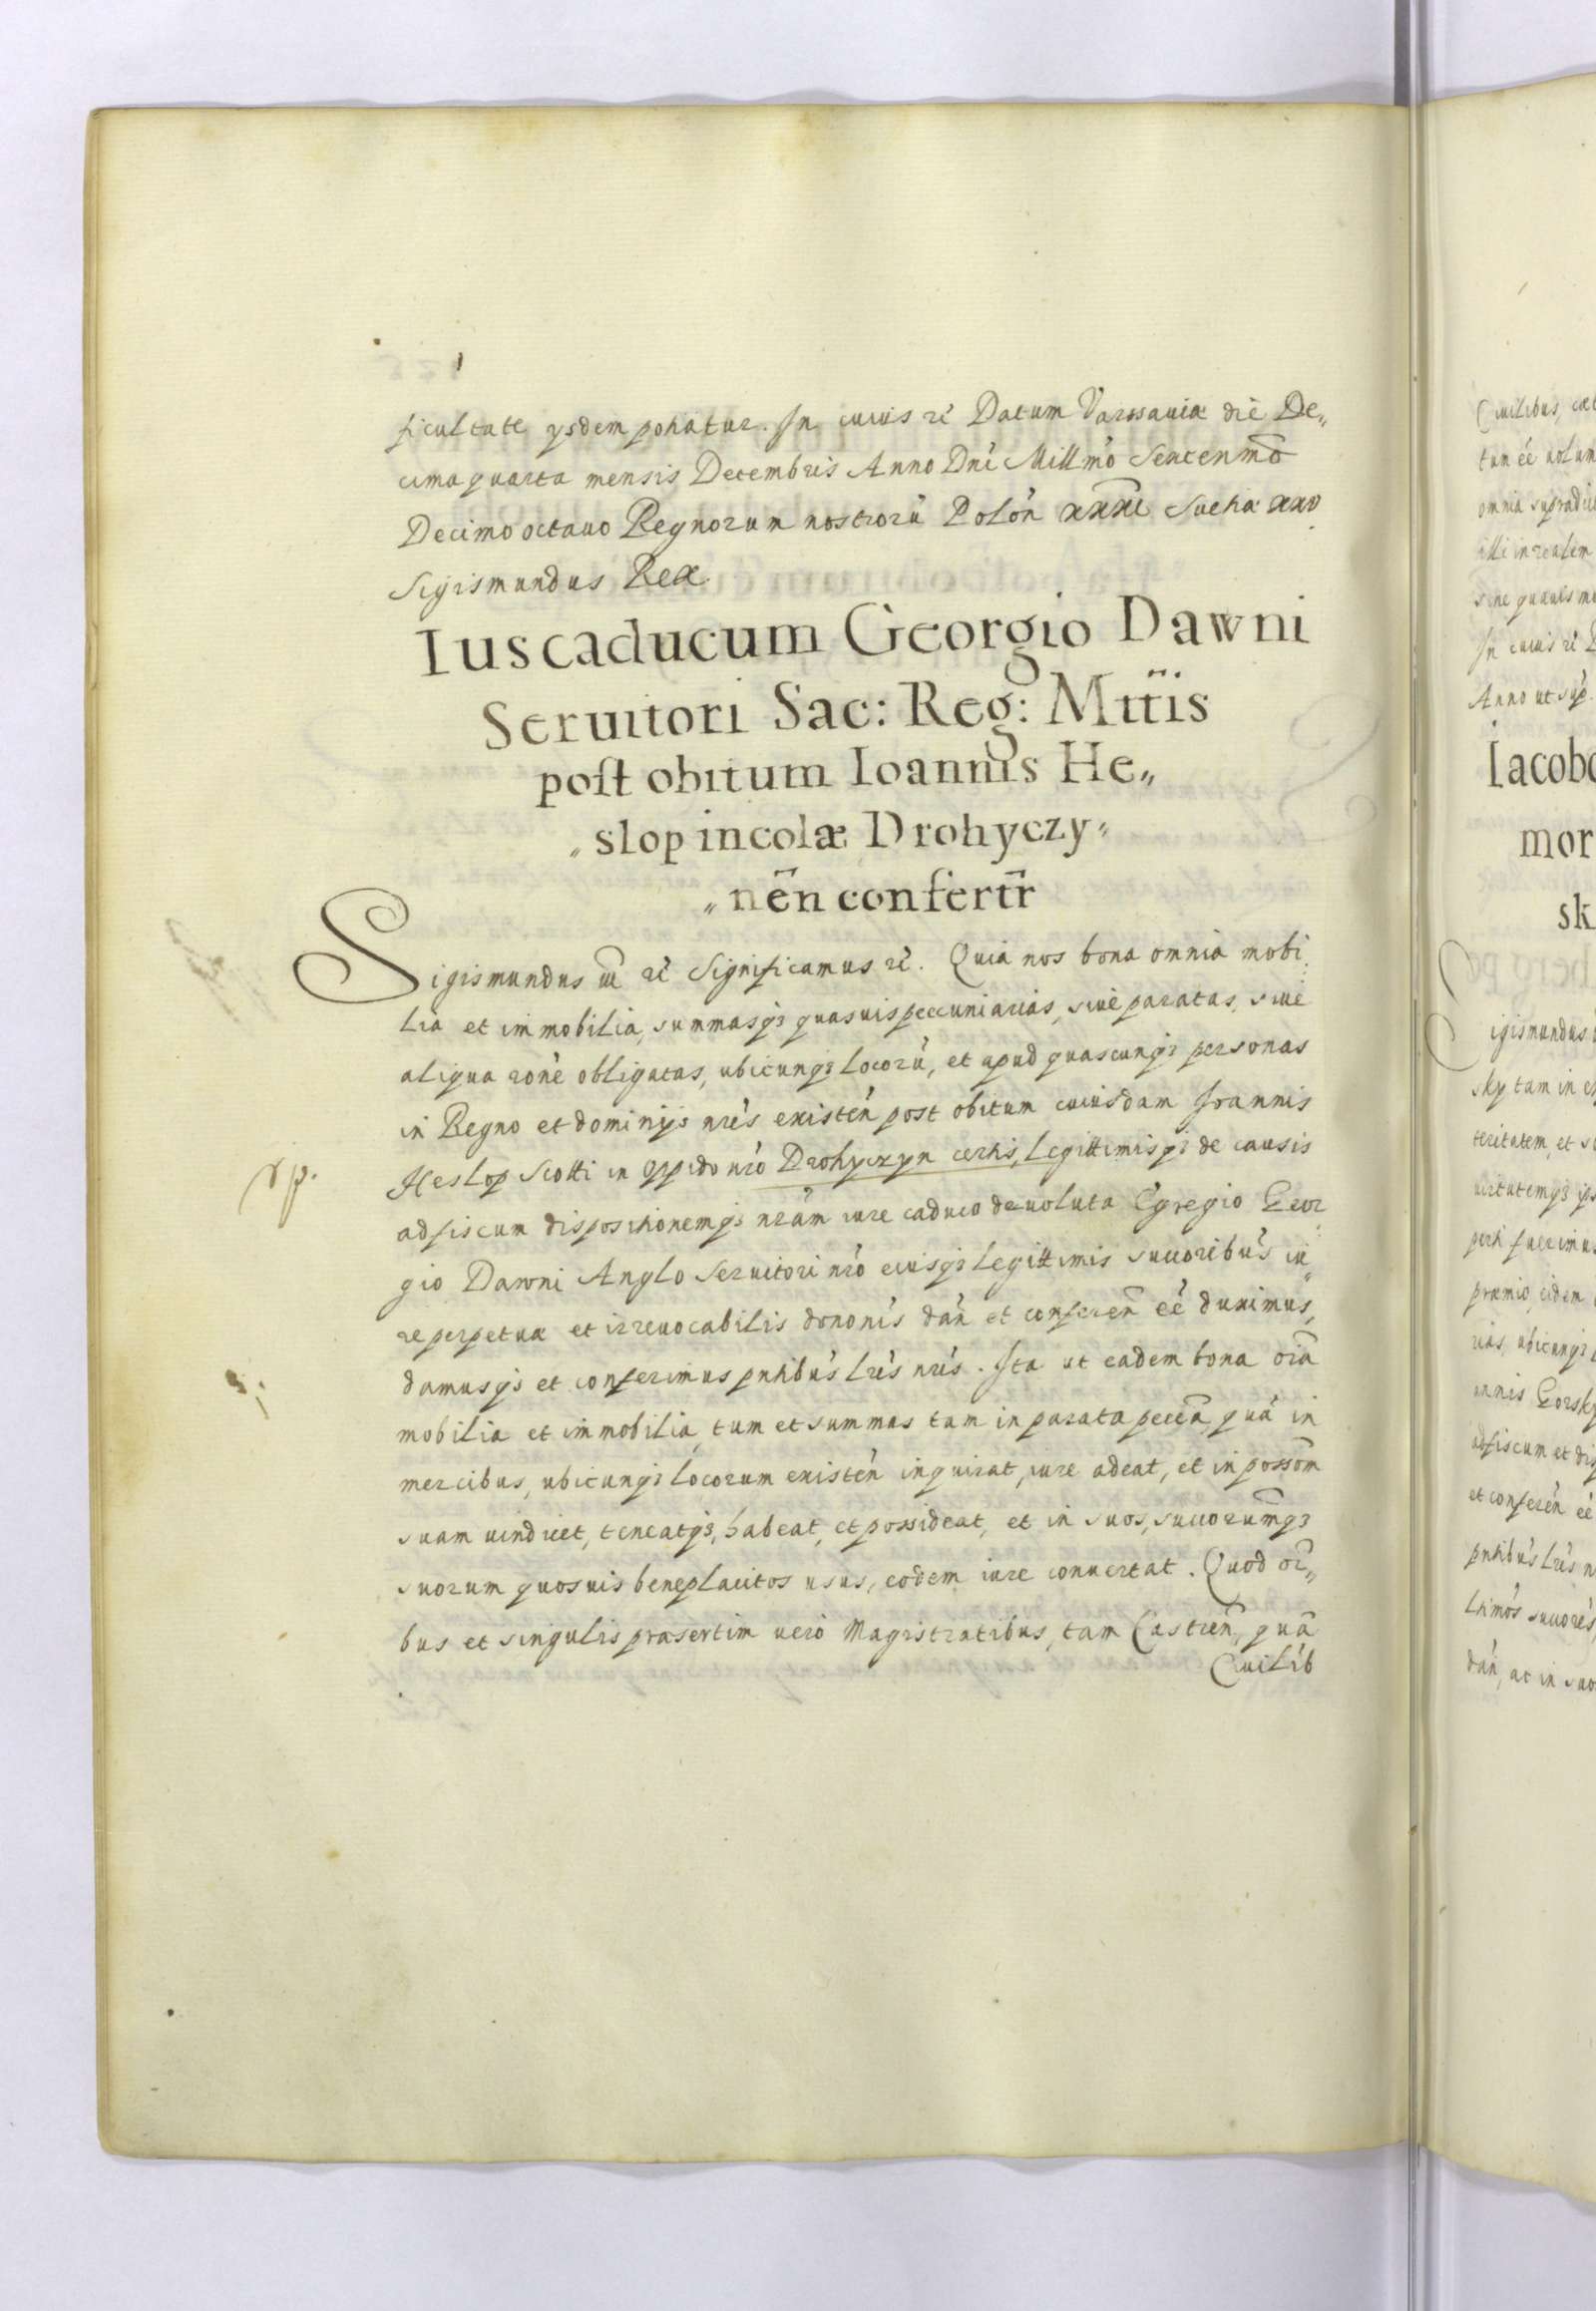 ficultate ysdem potiatur. In cuius rė Datum Varssaviæ die De„
cima quarta mensis Decembris Anno Dnï Millmo Sexcenmo
Decimo octauo Regnorum nostrorū Polon xxxi Suetiæ xxv
Sigismundus Rex
Ius caducum Georgio Dawni
Seruitori Sac: Reg: Mttis
post obitum Ioannis He„
„slop incolæ Drohyczy„
„nen confertr
Sigismundus iii rė Significamus rė. Quia nos bona omnia mobi
lia et immobilia, summasq3 quasuis peccuniarias, siue paratas, siue
aliqua rone obligatas, ubicunq3 locorū, et apud quascunq3 personas
in Regno et dominijs nris existen post obitum cuiusdam Joannis
Heslop Scotti in oppido nro Drohyczyn certis, legittimisq3 de causis
ad fiscum dispositionemq3 nram iure caduco deuoluta Egregio Geor
gio Dawni Anglo Seruitori nro eiusq3 legittimis succoribus iu
re perpetuæ et irreuocabilis dononis dan et conferen eė duximus,
damusq3 et conferimus pntibus lris nris. Ita ut eadem bona oia
mobilia et immobilia, tum et summas tam in parata pecca, quā in
mercibus, ubicunq3 locorum existen inquirat, iure adeat, et in possom
suam uindicet, teneatq3, habeat, et possideat, et in suos, succorumq3
suorum quosuis beneplacitos usus, eodem iure conuertat. Quod oi„
bus et singulis præsertim uero Magistratibus, tam Castren, quā
Ciuilib
Ciuilibus, cæt
tum eė uolum
omnia supradic
illi in realem
In cuius rė D
Anno ut sup.
Iacobo
mor
sk
igismundus
sky tam in ex
teritatem, et
uirtutemq3 ips
perti fuerimus
præmio, eidem
rias, ubicunq3
annis Gorsky
ad fiscum et dis
et conferen eė
pntibus lris n
ltimos succores,
dan, ac in suo